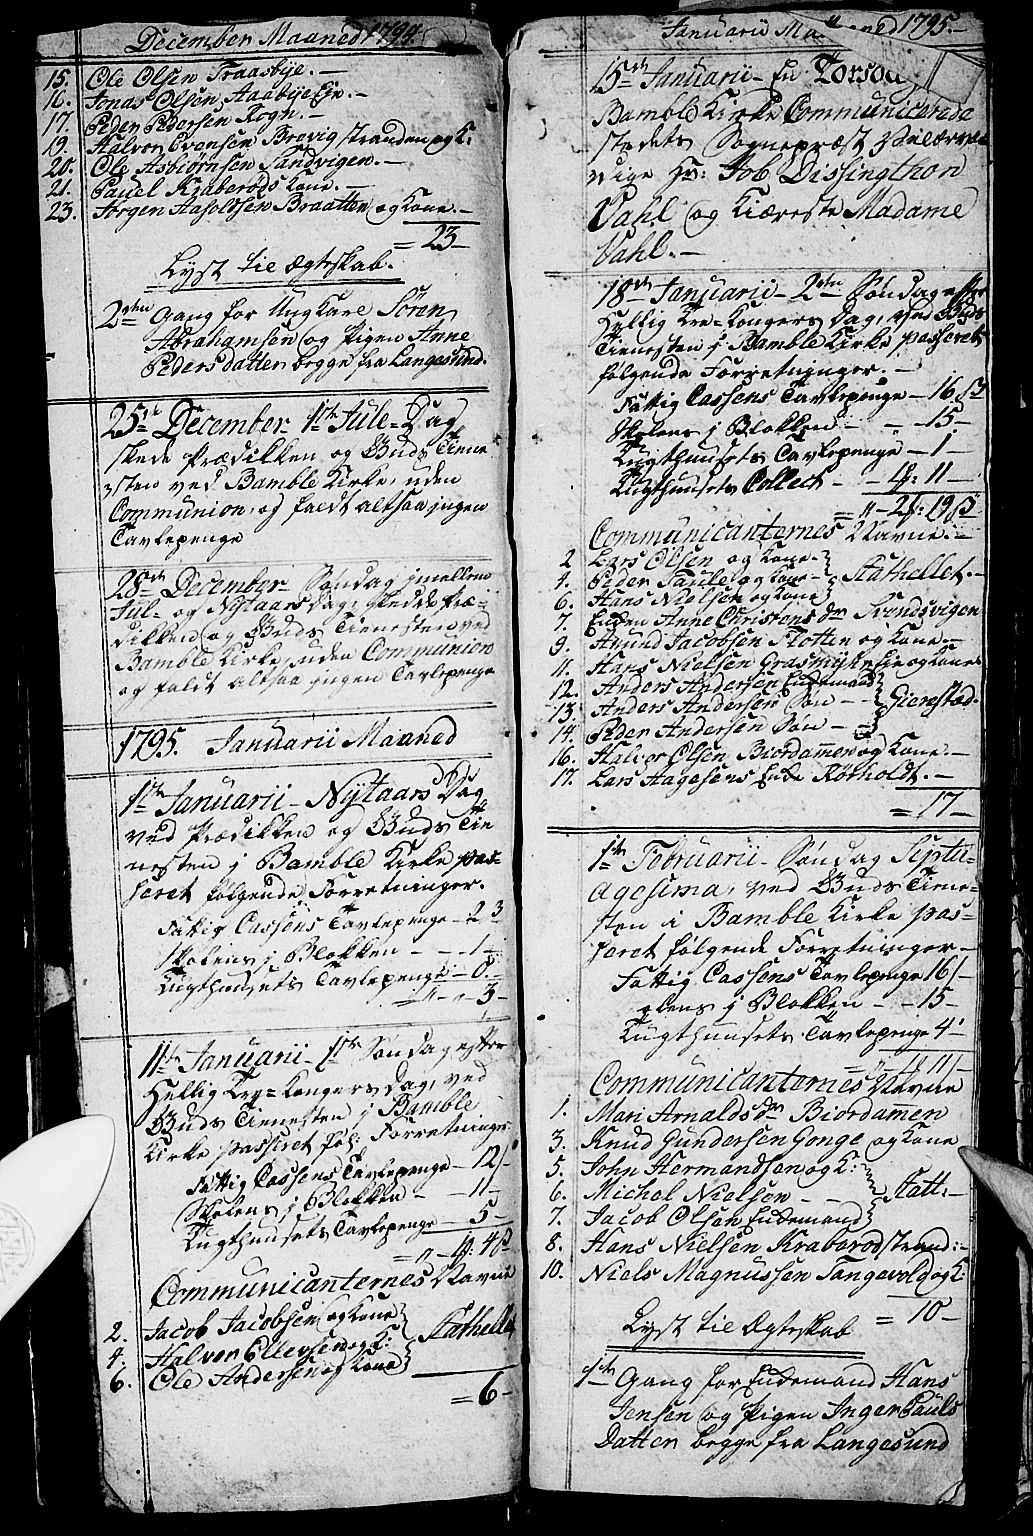 December Maaned 1794.
15. Ole Olsen Traasbÿe.-
16. Jonas Olsen, Aabÿe Eie.-
17. Peder Pedersen Rogn.-
19. Halvor Evensen Brevig stranden og K:
20. Ole Asbiörnsen Sandvigen.-
21. Pauel Kraberöds Kone.-
23. Jörgen Aasoldsen Braatten og Kone.-
= 23-
Lyst til Ægteskab.
2den Gang for Ung Karl Sören
Abrahamsen og Pigen Anne
Pedersdatter begge fra Langesund.
25de December- 1ste Jule-Dag
skede Prædikken og Guds Tiene
sten ved Bamble Kirke, uden
Communion, og faldt altsaa ingen
Tavlepenge
28de December- Söndag imellem
Jul- og Nÿtaarsdag, skedde Præ-
dikken og Guds Tienesten ved
Bamble Kirke, uden Communion
og faldt altsaa ingen Tavlepenge
1795. Januarii Maaned
1ste Januarii- Nÿtaars Dag
ved Prædikken og Guds Tie
nesten i Bamble Kirke pas-
seret fölgende Forretninger.
Fattig Cassens Tavlepenge - 2 3
Skolens i Blokken - - 1-
Tugthusets Tavlepenge - 0.-
= " - " 3-
11te Januarii- 1ste Söndag efter
Hellig Tre-Kongers Dag, ved
Guds Tienesten i Bamble
Kirke passeret föl: Forretninger
Fattig Cassens Tavlepenge - 12/-
Skolens i Blokken - - 11-
Tugthusets Tavlepenge - 5-
= " - 1: 4 ß
Communicanternes Navne
2. Jacob Jacobsen og Kone
4. Halvor Ellevsen og K: Stathelle
6. Ole Andersen og Kone
= 6-
Januarii Maaned 1795.-
15de Januarii- En Torsdag
Bamble Kirke Communicerede
stedets Sognepræst Velærvær
dige Hr: Job Dissingthon
Vahl og Kiæreste Madame
Vahl.-
18de Januarii- 2den Söndag efter
Hellig Tre-Kongers Dag, ved Guds
Tienesten i Bamble Kirke passeret
fölgende Forretninger.-
Fattig Cassens Tavlepenge - 16 ß
Skolens i Blokken - - 15-
Tugthusets Tavlepenge - 1-
Tugthusets Collect - - 1: 11-
= " - 2: 19 ß
Communicanternes Navne.-
2 Lars Olsen og Kone-
4. Peder Taule og Kone- Stathellet.-
6. Hans Nielsen og Kone
7. Enken Anne Christensdr Trondsvigen
9. Amund Jacobsen Flotten og Kone.-
11. Hans Nielsen Grasmÿr Eie og Kone
12. Anders Andersen Enkemand
13. Anders Andersen Sön - - Gierestad.
14. Peder Andersen Sön - -
16. Halvor Olsen Biordammen og Kone.-
17. Lars Aagesens Enke Rörholdt.-
= 17-
1ste Februarii- Söndag Septu-
agesima, ved Guds Tiene-
sten i Bamble Kirke pas-
seret fölgende Forretninger-
Fattig Cassens Tavlepenge 16/-
olens i Blokken - - 15-
Tugthusets Tavlepenge 4
Communicanternes Navne
1. Mari Arnaldsdr Biordammen
3. Knud Gundersen Gonge og Kone
5. John Hermandsen og K:
6. Michel Nielsen - - Stath:-
7. Jacob Olsen Enkemand
8. Hans Nielsen Kraberödstrand:-
10. Niels Magnussen Tangevold og K:
= 10-
Lyst til Ægteskab
1ste Gang for Enkemand Hans
Jensen og Pigen Inger Pauls
Datter begge fra Langesund